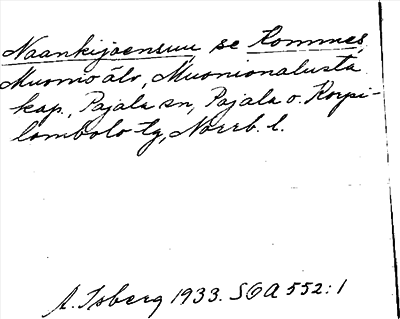 Naankijoensuu se Kommes,
Muonio älv, Muonionalusta
kap., Pajala sn, Pajala o. Korpi-
lombolo tg, Norrb. l.
A. Isberg 1933. SOA 552:1